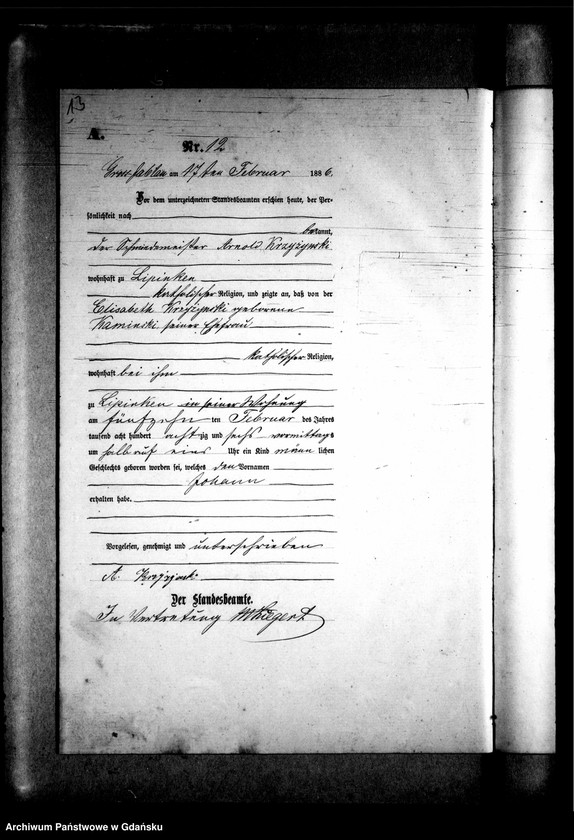 13
A.
Nr. 12
Gross Jablau am 17ten Februar 1886.
Vor dem unterzeichneten Standesbeamten erschien heute, der Per-
sönlichkeit nach
bekannt,
der Schmiedemeister Arnold Krzyzynski
wohnhaft zu Lipinken
katholischer Religion, und zeigte an, daß von der
Elisabeth Krzyzynski geborene
Kaminski seiner Ehefrau
katholischer Religion,
wohnhaft bei ihm
zu Lipinken in seiner Wohnung
am fünfzehn ten Februar des Jahres
tausend acht hundert acht zig und sechs vormittags
um halb auf eins Uhr ein Kind männ lichen
Geschlechts geboren worden sei, welches den Vornamen
Johann
erhalten habe.
Vorgelesen, genehmigt und unterschrieben
A.
Der Standesbeamte.
In Vertretung
Archiwum Państwowe w Gdańsku